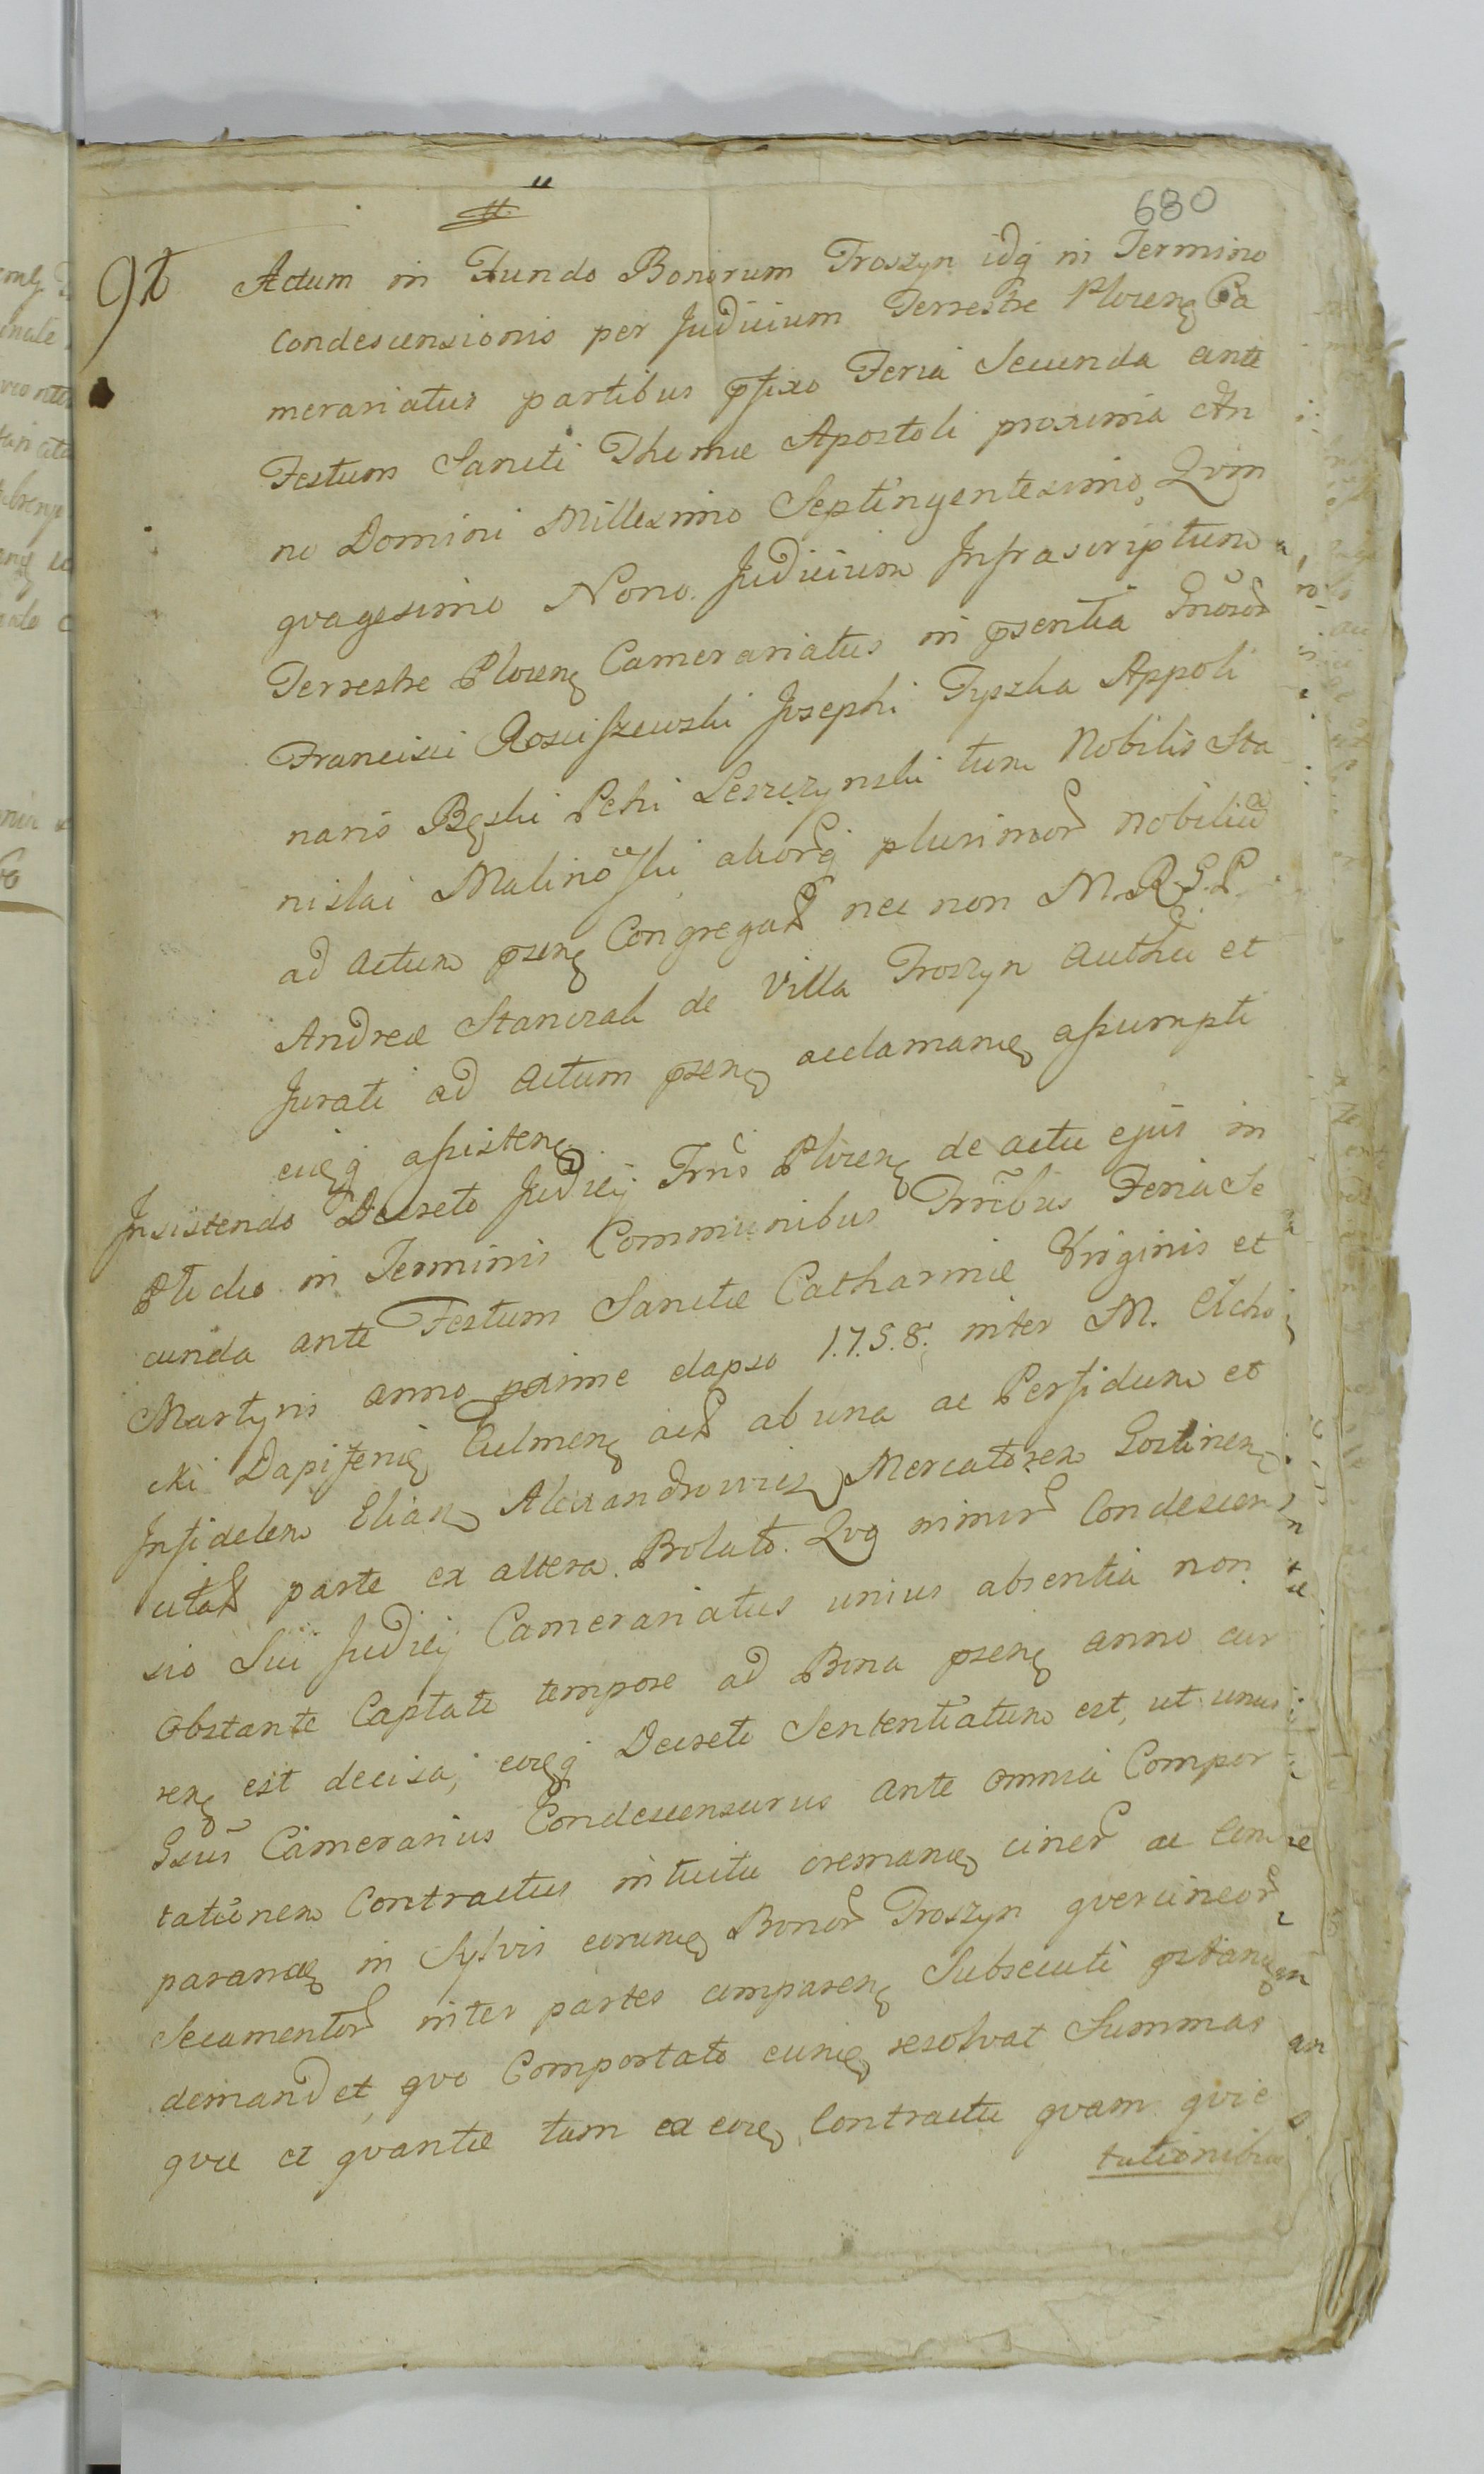 680
Actum in Fundo Bonorum Troszyn idq in Termino
Condescensionis per Judicium Terrestre Plocen Ca
merariatus partibus pfixo Feria Secunda ante
Festum Sancti Thomæ Apostoli proxima An
no Domini Millesimo Septingentesimo Qvin
qvagesimo Nono. Judicium Infrascriptum
Terrestre Plocen Camerariatus in psentia Gnosor
Francisci Rosciszewski Josephi Tyszka Appoli
naris Bęski Petri Leszczynski tum Nobilis Sta
nislai Malinowski aliorq plurimor Nobilium
ad Actum psen Congregat nec non M.R.G.P.
Andreæ Stanczak de Villa Troszyn Authu et
Jurati ad Actum psen acclamand assumpti
eidq assisten
Insistendo Decreto Judicij Trris Plocen de actu ejus in
Plocko in Terminis Communibus Trribus Feria Se
cunda ante Festum Sanctæ Catharinæ Virginis et
Martyris anno proxime elapso 1.7.5.8. inter M. Cicho
cki Dapiferid Culmen act ab una ac Perfidum et
Infidelem Elian Alexandrowicz Mercatorem Gostinen
citat parte ex altera Prolato. Qvq nimir Condescen
sio Sui Judicij Camerariatus unius absentia non
obstante Captato tempore ad Bona psen anno cur
ren est decisa, eodq Decreto Sententiatum est, ut unus
Gsus Camerarius Condescensurus ante omnia Compor
tationem Contractus intuitu cremand ciner ac Com
parand in Sylvis eorund Bonor Troszyn qvercineor
Secamentor inter partes comparen Subsecuti pstand
demandet, qvo Comportato eund resolvat Summas
qvæ et qvantæ tam ex eod Contractu qvam qvie
tationibus